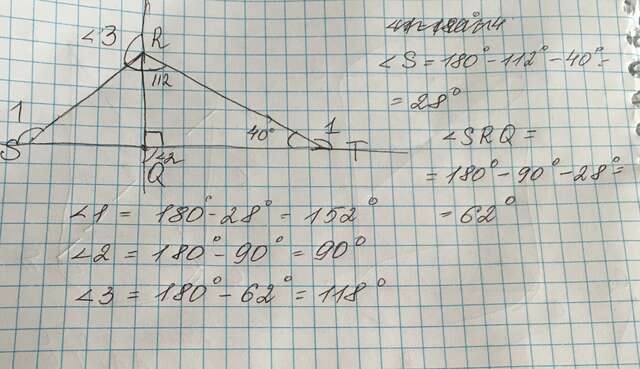 ∠3 R
112
1
S
40°
1
T
∠2
Q
∠S = 180° - 112° - 40° =
= 28°
∠SRQ =
= 180° - 90° - 28° =
= 62°
∠1 = 180° - 28° - 152°
∠2 = 180° - 90° = 90°
∠3 = 180° - 62° = 118°